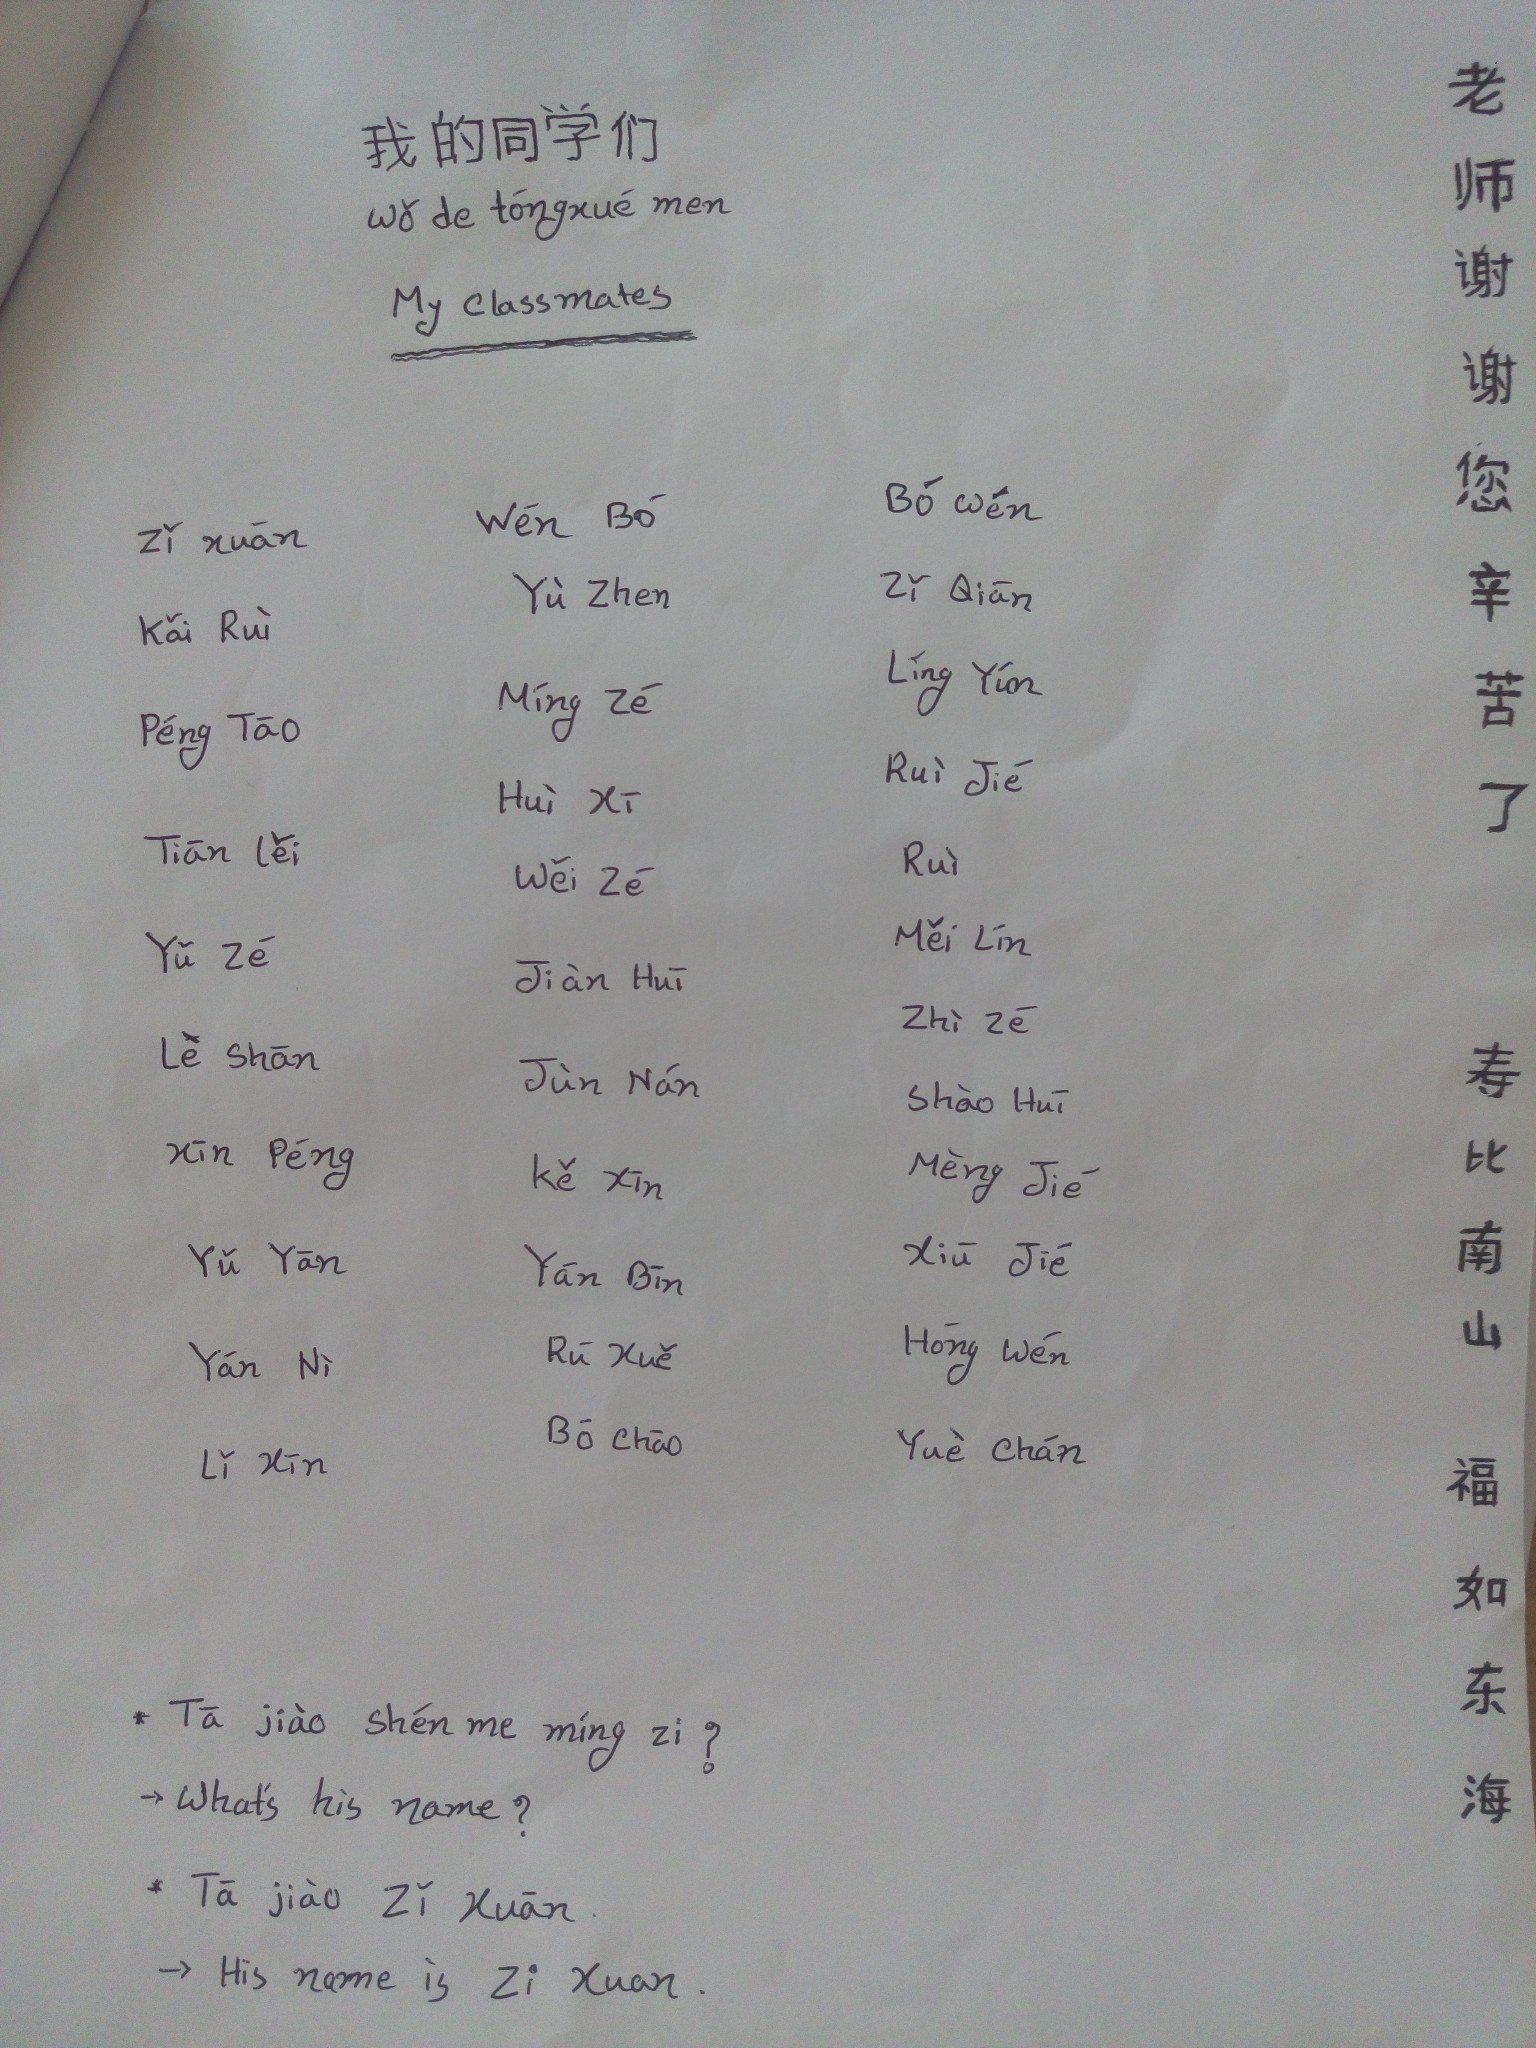 我的同学们
wǒ de tóngxué men
My classmates
Zǐ xuān
Kǎi Ruì
Péng Tāo
Tiān lěi
Yǔ Zé
Lè Shān
xīn Péng
Yǔ Yān
Yán Nì
Lǐ xīn
Wén Bó
Yù Zhen
Míng Zé
Huì xī
Wěi Zé
Jiàn Huī
Jùn Nán
Kě xīn
Yán Bīn
Rú xuě
Bó Chāo
Bó wén
Zǐ Qiān
Líng Yún
Ruì Jié
Ruì
Měi Lín
Zhì Zé
Shào Huī
Mèng Jié
xiū Jié
Hóng Wén
Yuè Chán
* Tā jiào shén me míng zi?
→ What's his name?
* Tā jiào Zǐ Xuān.
→ His name is Zi Xuan.
老师谢谢您辛苦了
寿比南山
福如东海